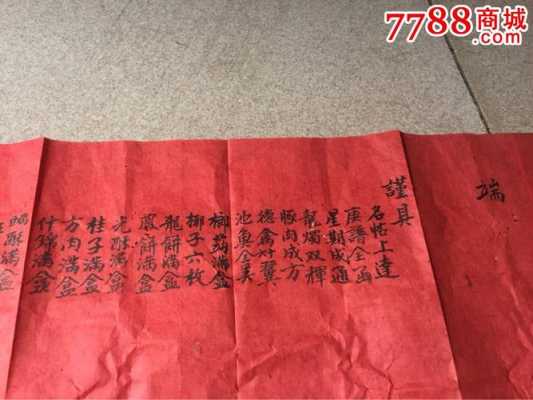 7788商城
端
謹具
名帖上達
庚譜全函
星期成通
龍燭双輝
豚肉成方
德禽對翼
池魚全美
蒟滿盒
椰子六枚
龍餅滿盒
餅滿盒
酥滿盒
桂子滿盒
方肉滿盒
什錦滿盒
酥滿盒